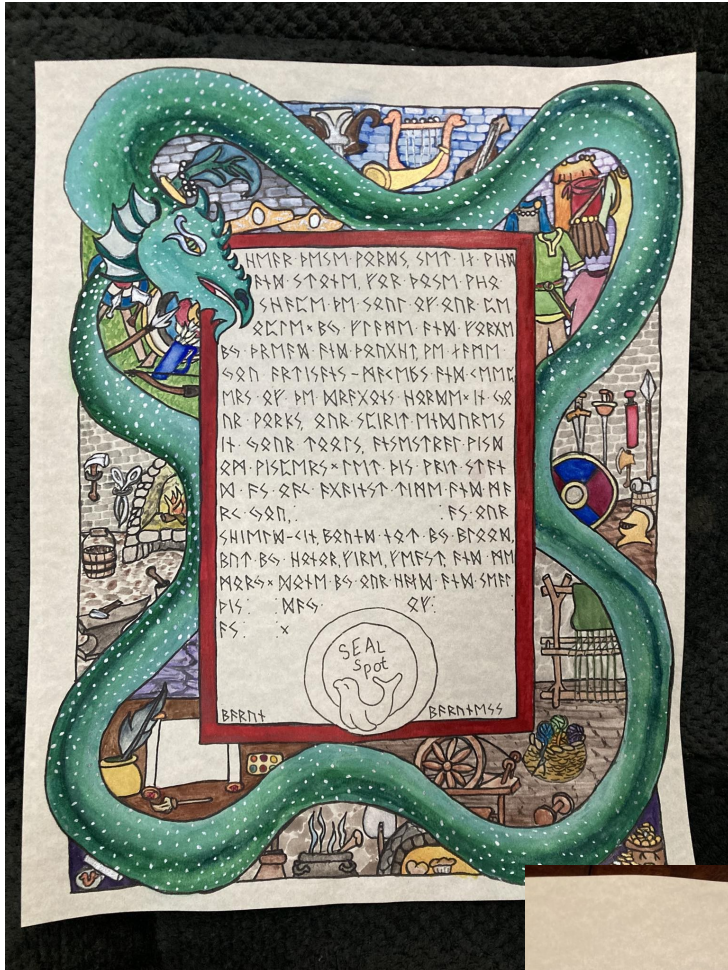 ᚺᛖᚨᚱ·ᚦᛖᛊᛖ·ᚹᛟᚱᛞᛊ, ᛊᛖᛏ·ᛁᚾ·ᚹᛁᚾᛞ
ᚨᚾᛞ·ᛊᛏᛟᚾᛖ, ᚠᛟᚱ·ᚦᛟᛊᛖ·ᚹᚺᛟ·
ᛊᚺᚨᛈᛖ·ᚦᛖ·ᛊᛟᚢᛚ·ᛟᚠ·ᛟᚢᚱ·ᛈᛖ
ᛟᛈᛚᛖ×ᛒᛃ·ᚠᛚᚨᛗᛖ·ᚨᚾᛞ·ᚠᛟᚱᚷᛖ
ᛒᛃ·ᚦᚱᛖᚨᛞ·ᚨᚾᛞ·ᚦᛟᚢᚷᚺᛏ, ᚹᛖ·ᚾᚨᛗᛖ·
ᛃᛟᚢ·ᚨᚱᛏᛁᛊᚨᚾᛊ-ᛗᚨᚲᛖᚱᛊ·ᚨᚾᛞ·ᚲᛖᛖᛈ
ᛖᚱᛊ·ᛟᚠ·ᚦᛖ·ᛞᚱᚨᚷᛟᚾᛊ·ᚺᛟᚱᛞᛖ×ᛁᚾ·ᛃᛟ
ᚢᚱ·ᚹᛟᚱᚲᛊ, ᛟᚢᚱ·ᛊᛈᛁᚱᛁᛏ·ᛖᚾᛞᚢᚱᛖᛊ
ᛁᚾ·ᛃᛟᚢᚱ·ᛏᛟᛟᛚᛊ, ᚨᚾᛊᛖᛊᛏᚱᚨᛚ·ᚹᛁᛊᛞ
ᛟᛗ·ᚹᛁᛊᛈᛖᚱᛊ×ᛚᛖᛏ·ᚦᛁᛊ·ᚹᚱᛁᛏ·ᛊᛏᚨᚾ
ᛞ·ᚨᛊ·ᛟᚨᚲ·ᚨᚷᚨᛁᚾᛊᛏ·ᛏᛁᛗᛖ·ᚨᚾᛞ·ᛗᚨ
ᚱᚲ·ᛃᛟᚢ,: :ᚨᛊ·ᛟᚢᚱ
ᛊᚺᛁᛖᛚᛞ-ᚲᛁᚾ, ᛒᛟᚢᚾᛞ·ᚾᛟᛏ·ᛒᛃ·ᛒᛚᛟᛟᛞ,
ᛒᚢᛏ·ᛒᛃ·ᚺᛟᚾᛟᚱ, ᚠᛁᚱᛖ, ᚠᛖᚨᛊᛏ, ᚨᚾᛞ·ᛗᛖ
ᛗᛟᚱᛃ×ᛞᛟᚾᛖ·ᛒᛃ·ᛟᚢᚱ·ᚺᚨᚾᛞ·ᚨᚾᛞ·ᛊᛖᚨᛚ
ᚦᛁᛊ: :ᛞᚨᛃ: ᛟᚠ: :
ᚨᛊ: :×
SEAL
Spot
ᛒᚨᚱᚢᚾ ᛒᚨᚱᚢᚾᛖᛊᛊ